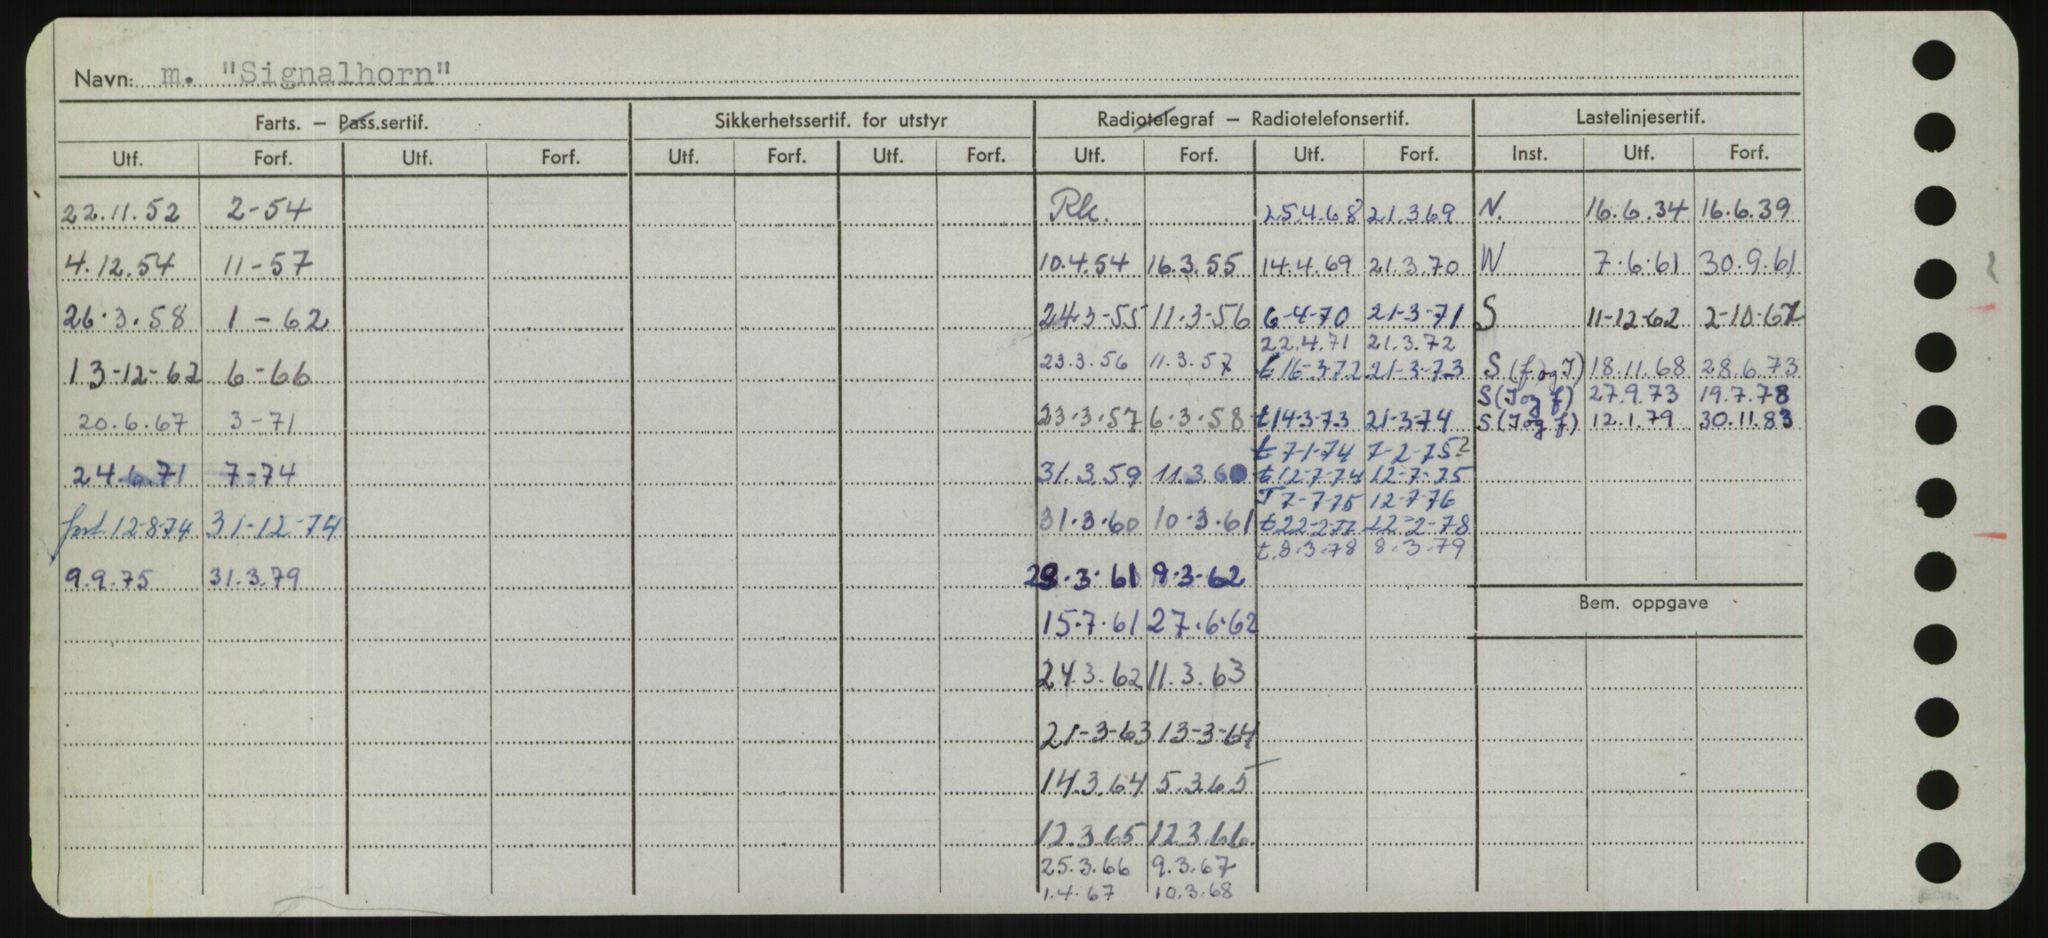 Navn: m. "Signalhorn"
Farts. – Pass.sertif. Sikkerhetssertif. for utstyr Radiotelegraf – Radiotelefonsertif. Lastelinjesertif.
Utf. Forf. Utf. Forf. Utf. Forf. Utf. Forf. Utf. Forf. Utf. Forf. Inst. Utf. Forf.
22.11.52 2-54 Rk. 25.4.68 21.3.69 N. 16.6.34 16.6.39
4.12.54 11-57 10.4.54 16.3.55 14.4.69 21.3.70 W 7.6.61 30.9.61
26.3.58 1-62 24.3-55 11.3-56 6-4-70 21-3-71 S 11-12-62 2-10-67
22.4.71 21.3.72
13-12-62 6-66 23.3.56 11.3.57 t 16-3-72 21-3-73 S (f og I) 18.11.68 28.6.73
S (I og f) 27.9.73 19.7.78
20.6.67 3-71 23.3.57 6.3.58 t 14-3-73 21-3-74 S (I og f) 12.1.79 30.11.83
t 7-1-74 7-2-75?
24.6.71 7-74 31.3.59 11.3.60 t 12-7-74 12-7-75
T 7-7-75 12-7-76
fort 12-8-74 31-12-74 31.3.60 10.3.61 t 22-2-77 22-2-78
t. 8.3.78 8.3.79
9.9.75 31.3.79 .3.61 9.3.62
Bem. oppgave
15.7.61 27.6.62
24.3.62 11.3.63
21-3-63 13-3-64
14.3.64 5.3.65
12.3.65 12.3.66
25.3.66 9.3.67
1.4.67 10.3.68